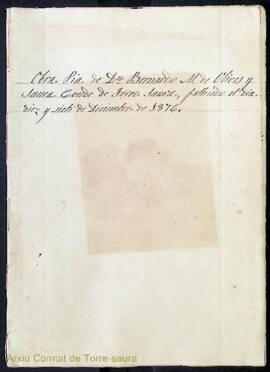 Obra Pia de Dn. Bernardo M. de Olives y
Saura Conde de Torre Saura, fallecido el dia
diez y siete de Diciembre de 1876.
Arxiu Comtat de Torre-saura